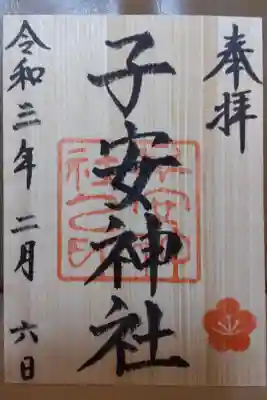 奉拝
子安神社
令和三年二月六日